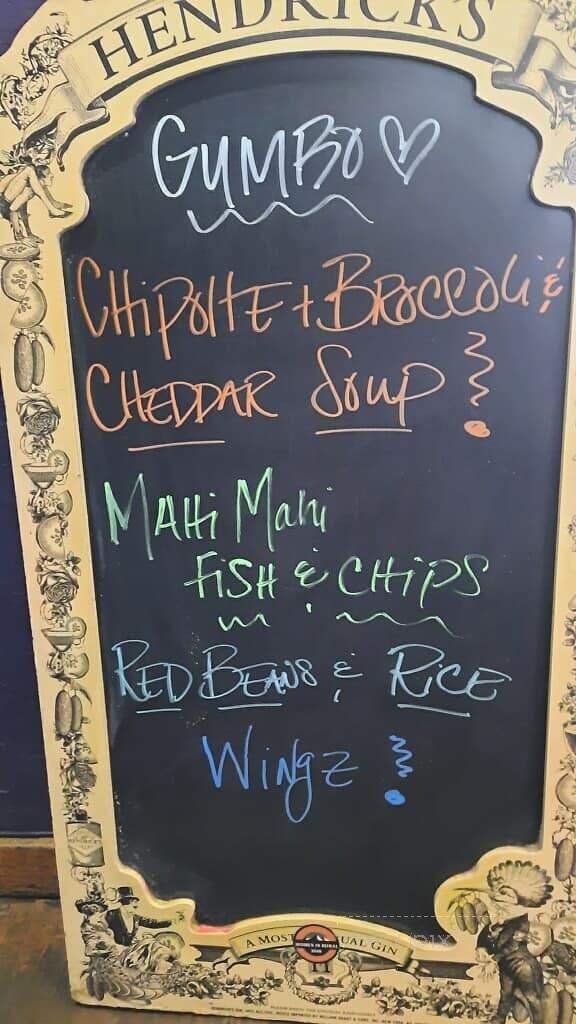 HENDRICK'S
GUMBO ♡
CHIPOLTE + BROCCOLI &
CHEDDAR SOUP !
MAHI MAHI
FISH & CHIPS
RED BEANS & RICE
WINGZ !
A MOST UNUSUAL GIN